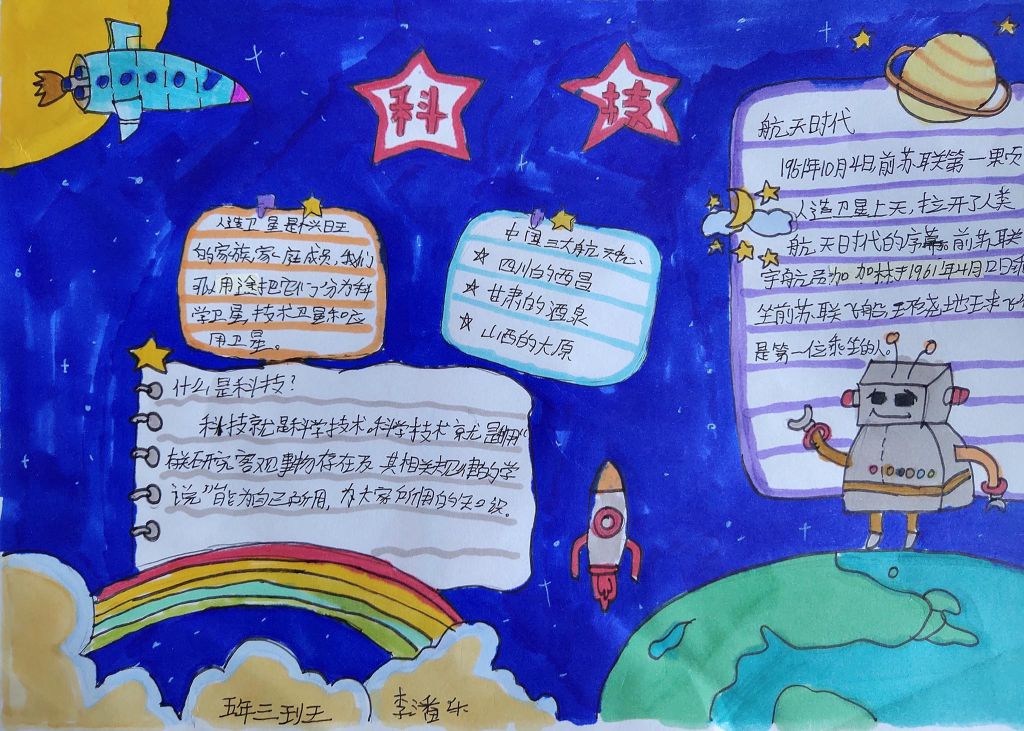 科技
航天时代
1957年10月4日,前苏联第一颗
人造卫星上天,拉开了人类
航天时代的序幕。前苏联
宇航员加加林于1961年4月12日
坐前苏联飞船
是第一位乘坐的人。
人造卫星是个兴旺
的家族,家庭成员,我们
可以用途把它们分为科
学卫星,技术卫星和应
用卫星。
中国三大航天
☆四川的西昌
☆甘肃的酒泉
☆山西的太原
什么是科技?
科技就是科学技术,科学技术就是用
研究客观事物存在及其相关规律的学
说"能为自己所用,为大家所用的知识。
五年三班
李潘乐